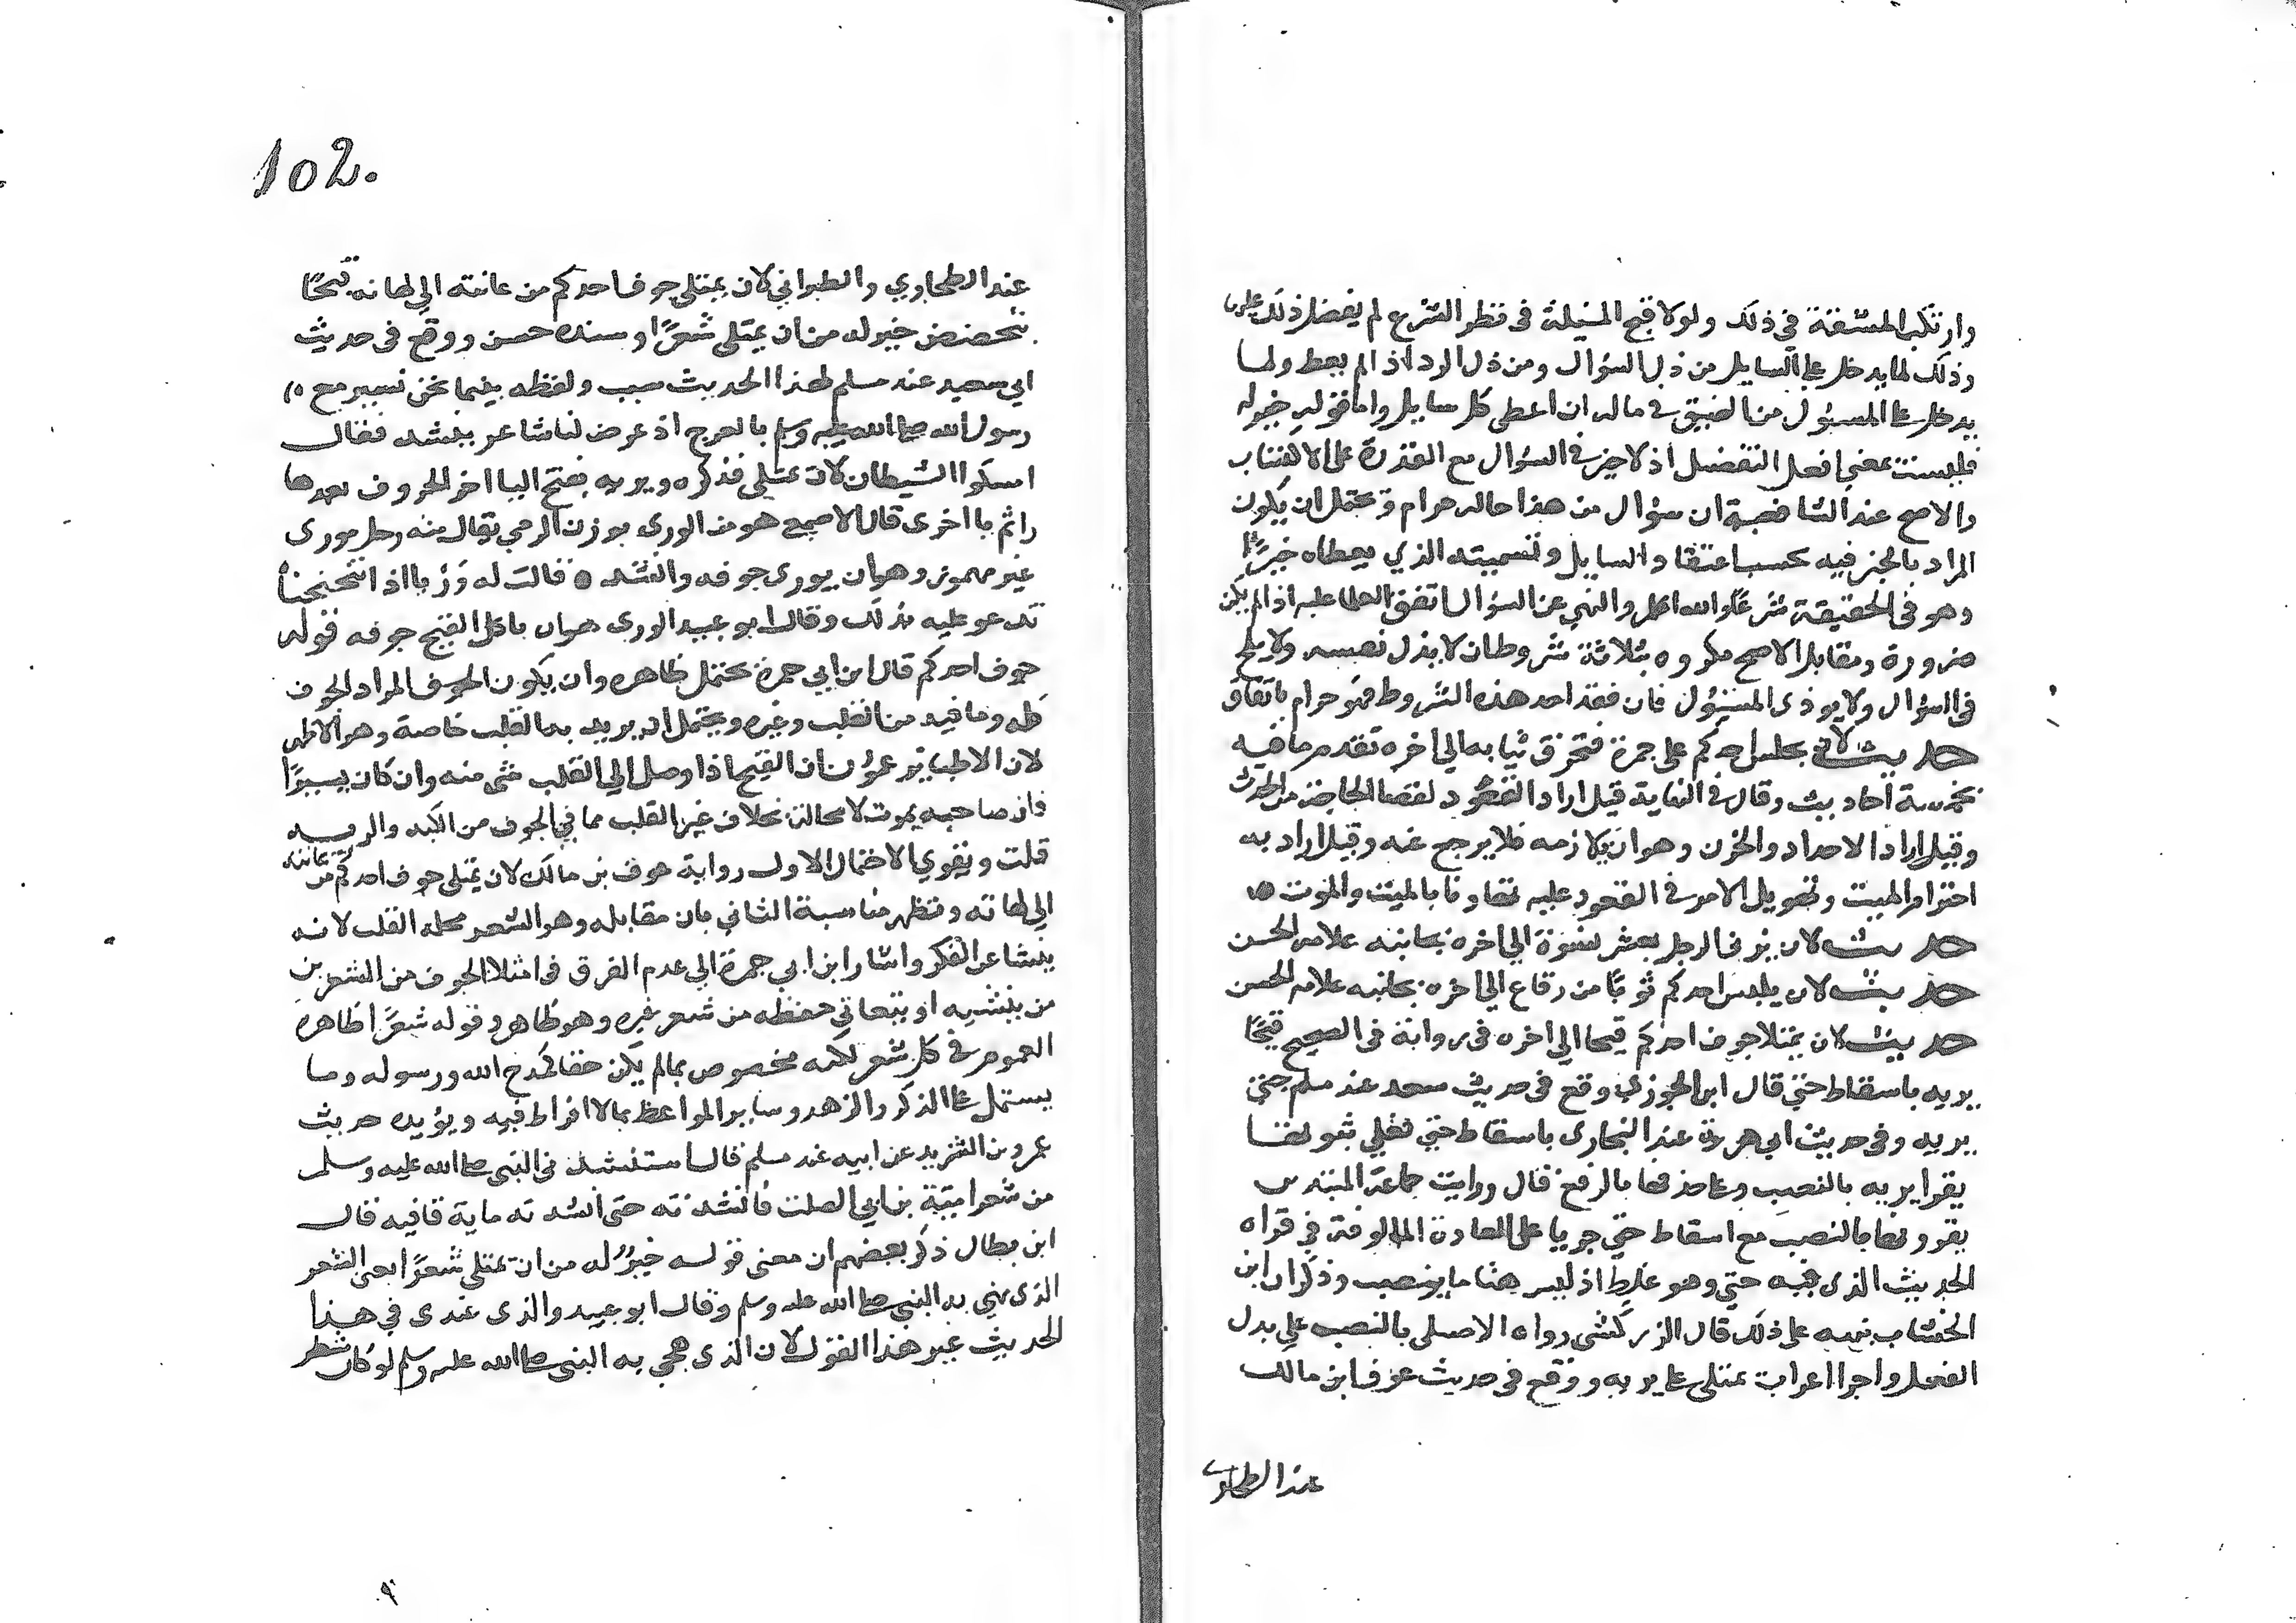 وارتكب المشقة في ذلك ولولا قبح المسئلة في نظر الشرع لم يفضل ذلك عليها
وذلك لما يدخل على السايل من ذل السؤال ومن ذل الرد اذا لم يعط ولما
يدخل على المسئول من الضيق في ماله ان اعطى كل سايل واما قوله خير له
فليست بمعنى افعل التفضيل اذ لا خير في السؤال مع القدرة على الاكتساب
والاصح عند الشافعية ان سؤال من هذا حاله حرام ويحتمل ان يكون
المراد بالخير فيه بحسب اعتقاد السايل وتسميته الذي يعطاه خيرا
وهو في الحقيقة شر والله اعلم والنهي عن السؤال اتفق العلما عليه اذا لم يكن
ضرورة ومقابل الاصح مكروه بثلاثة شروط ان لا يذل نفسه ولا يلح
في السؤال ولا يوذي المسئول فان فقد احد هذه الشروط فهو حرام باتفاق
حديث لان يجلس احدكم على جمرة فتحرق ثيابه الى اخره تقدم ما فيه
بخمسة احاديث وقال في النهاية قيل اراد القعود لقضا الحاجة من الحدث
وقيل اراد الاحداد والحزن وهو ان يلازمه فلا يرجع عنه وقيل اراد به
احترام الميت وتهويل الامر في القعود عليه تهاونا بالميت والموت
حديث لان يزني الرجل بعشر نسوة الى اخره بجانبه علامة الحسن
حديث لان يلبس احدكم ثوبا من رقاع الى اخره بجانبه علامة الحسن
حديث لان يمتلا جوف احدكم قيحا الى اخره في رواية في الصحيح قيحا
يريه باسقاط حتى قال ابن الجوزي وقع في حديث سعد عند مسلم حتى
يريه وفي حديث ابي هريرة عند البخاري باسقاط حتى فعلى ثبوتها
يقرا يريه بالنصب وعلى حذفها بالرفع قال ورايت جماعة المبتدين
يقرونها بالنصب مع اسقاط حتى جريا على العادة المالوفة في قراة
الحديث الذي فيه حتى وهو غلط اذ ليس هنا ما ينصب وذكر ان ابن
الخشاب نبهه على ذلك قال الزركشي رواه الاصيلي بالنصب على بدل
الفعل واجرا اعراب يمتلي على يريه ووقع في حديث عوف ابن مالك
عند الطحاوي
102.
عند الطحاوي والطبراني لان يمتلي جوف احدكم من عانته الى لهاته قيحا
يتخضخض خير له من ان يمتلي شعرا وسنده حسن ووقع في حديث
ابي سعيد عند مسلم لهذا الحديث سبب ولفظه بينما نحن نسير مع
رسول الله صلى الله عليه وسلم بالعرج اذ عرض لنا شاعر ينشد فقال
امسكوا الشيطان لان يمتلي فذكره ويريه بفتح اليا اخر الحروف بعدها
را ثم يا اخرى قال الاصمعي هو من الوري بوزن الرمي يقال منه رجل موري
غير مهموز وهو ان يوري جوفه وانشد قالت له وريا اذا تنحنحا
تدعو عليه بذلك وقال ابو عبيد الوري هو ان ياكل القيح جوفه قوله
جوف احدكم قال ابن ابي جمرة يحتمل ظاهره وان يكون الجوف المراد الجوف
كله وما فيه من القلب وغيره ويحتمل ان يريد به القلب خاصة وهو الاظهر
لان الاطبا يزعمون ان القيح اذا وصل الى القلب شي منه وان كان يسيرا
فان صاحبه يموت لا محالة بخلاف غير القلب مما في الجوف من الكبد والريه
قلت ويقوي الاحتمال الاول رواية عوف بن مالك لان يمتلي جوف احدكم من عانته
الى لهاته وتظهر مناسبة الثاني بان مقابله وهو الشعر محله القلب لانه
ينشا عن الفكر واشار ابن ابي جمرة الى عدم الفرق في امتلا الجوف من الشعر بين
من ينشيه او يتعانى حفظه من شعر غيره وهو ظاهر وقوله شعرا ظاهره
العموم في كل شعر لكنه مخصوص بما لم يكن حقا كمدح الله ورسوله وما
يشتمل على الذكر والزهد وساير المواعظ مما لا افراط فيه ويؤيده حديث
عمرو بن الشريد عن ابيه عند مسلم قال استنشدني النبي صلى الله عليه وسلم
من شعر امية بن ابي الصلت فانشدته حتى انشدته ماية قافيه قال
ابن بطال ذكر بعضهم ان معنى قوله خير له من ان يمتلي شعرا يعني الشعر
الذي هجي به النبي صلى الله عليه وسلم وقال ابو عبيد والذي عندي في هذا
الحديث غير هذا القول لان الذي هجي به النبي صلى الله عليه وسلم لو كان شطر